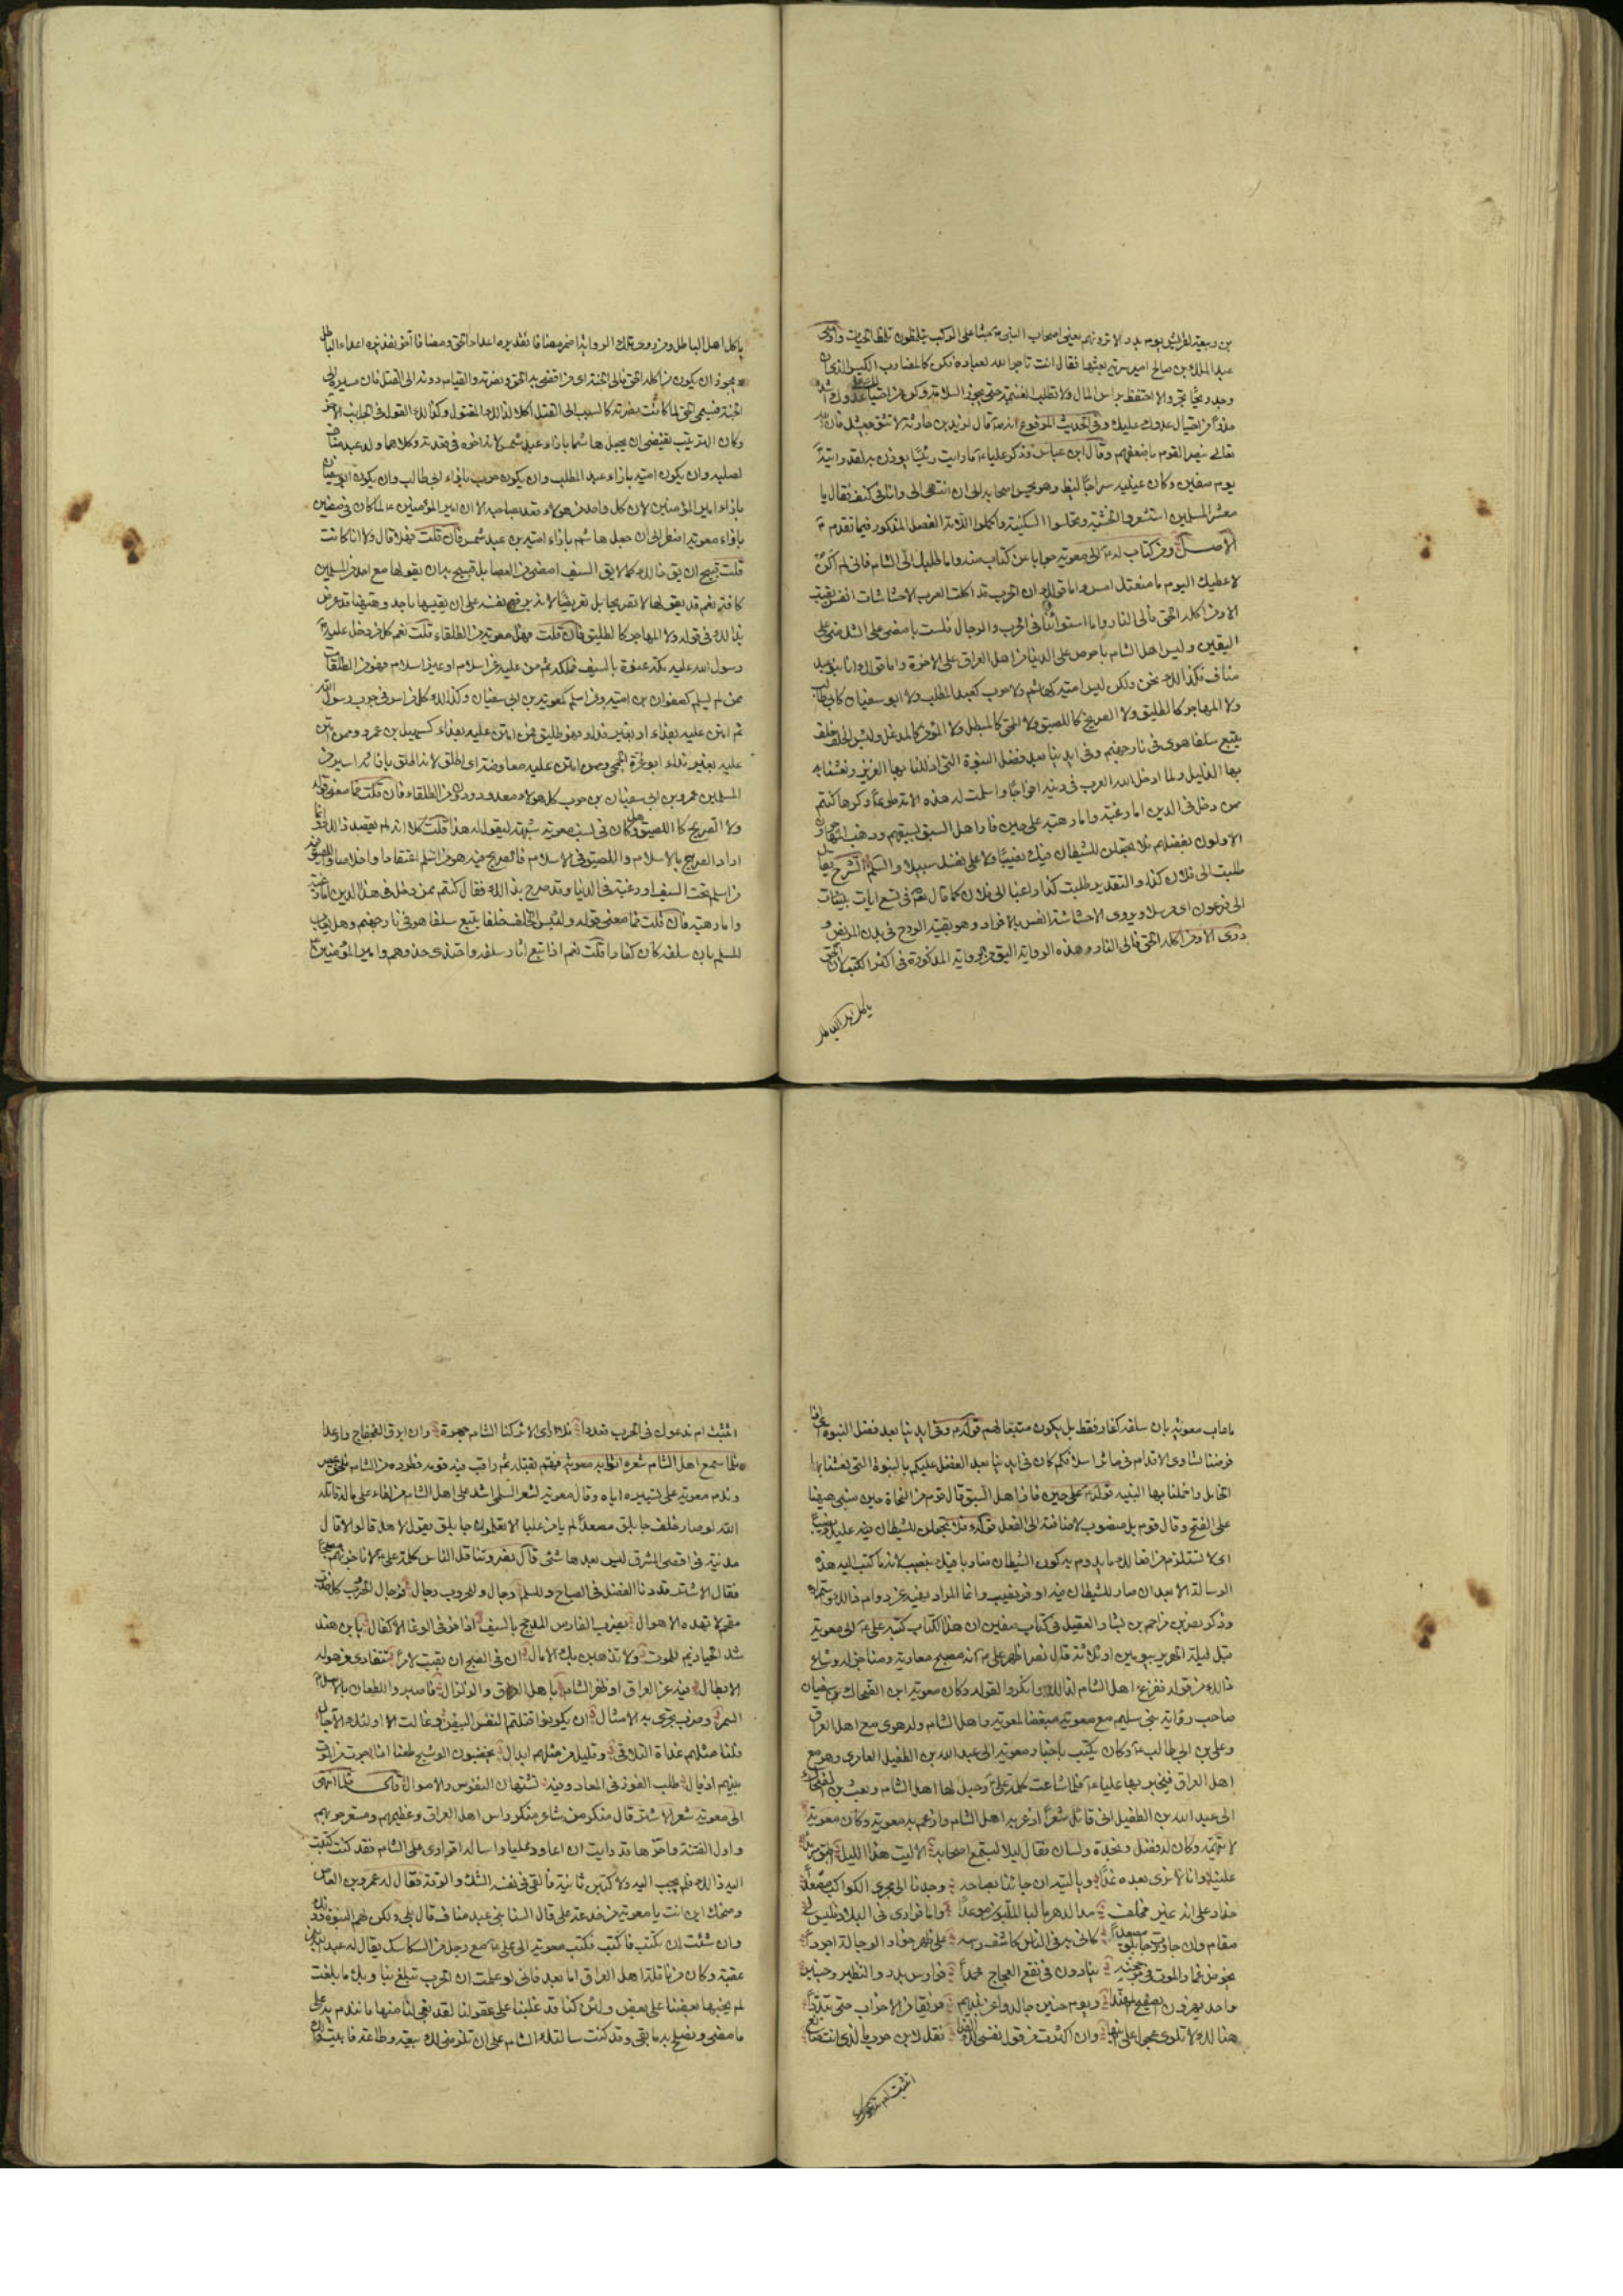 بن ربيعة لقريش يوم بدر الا ترونهم يعنى اصحاب النبى جثيا على الركب يتلمظون تلمظ الحيات واوصى
عبد الملك بن صالح امير سرية بعثها فقال انت تاجر الله لعباده فكن كالمضارب الكيس الذى ان
وجد ربحا تجر والا احتفظ براس المال ولا تطلب الغنيمة حتى تحوز السلامة وكن من احتيالك على عدوك اشد
حذرا من احتيال عدوك عليك وفى الحديث المرفوع انه قال لزيد بن حارثة لا تشق جيشك فان الله
تعالى ينصر القوم باضعفهم وقال ابن عباس وذكر عليا ما رايت رئيسا يوزن به لقد رايته
يوم صفين وكان عينيه سراجا سليط وهو يحمس اصحابه الى ان انتهى الى وانا فى كنف فقال يا
معشر المسلمين استشعروا الخشية وتجلببوا السكينة واكملوا اللامة الفصل المذكور فيما تقدم
الاصل ومن كتاب له الى معوية جوابا عن كتاب منه واما طلبك الى الشام فانى لم اكن
لاعطيك اليوم ما منعتك امس واما قولك ان الحرب قد اكلت العرب الا حشاشات انفس بقيت
الا ومن اكله الحق فالى النار واما استواؤنا فى الحرب والرجال فلست بامضى على الشك منى على
اليقين وليس اهل الشام باحرص على الدنيا من اهل العراق على الاخرة واما قولك انا بنو عبد
مناف فكذلك نحن ولكن ليس امية كهاشم ولا حرب كعبد المطلب ولا ابو سفيان كابى طالب
ولا المهاجر كالطليق ولا الصريح كاللصيق ولا المحق كالمبطل ولا المؤمن كالمدغل ولبئس الخلف خلف
يتبع سلفا هوى فى نار جهنم وفى ايدينا بعد فضل النبوة التى اذللنا بها العزيز ونعشنا
بها الذليل ولما ادخل الله العرب فى دينه افواجا واسلمت له هذه الامة طوعا وكرها كنتم
ممن دخل فى الدين اما رغبة واما رهبة على حين فاز اهل السبق بسبقهم وذهب المهاجرون
الاولون بفضلهم فلا تجعلن للشيطان فيك نصيبا ولا على نفسك سبيلا والسلم الشرح يقال
طلبت الى فلان كذا والتقدير طلبت كذا راغبا الى فلان كما قال تعالى فى تسع ايات بينات
الى فرعون اى مرسلا ويروى الا حشاشة نفس بالافراد وهو بقية الروح فى بدن المريض و
روى الا ومن اكله الحق فالى النار وهذه الرواية اليق من الرواية المذكورة فى اكثر الكتب لان الحق
ياكل اهل الباطل
ياكل اهل الباطل ومن روى تلك الرواية اضمر مضافا تقديره اعداء الحق ومضافا اخر تقديره اعداء الباطل
ويجوز ان يكون من اكله الحق فالى الجنة اى من افضى به الحق ونصرته والقيام دونه الى القتل فان مسيره الى
الجنة فيسمى الحق لما كانت نصرته كالسبب الى القتل اكلا لذلك المقتول وكذلك القول فى الجانب الاخر
وكان الترتيب يقتضى ان يجعل هاشما بازاء عبد شمس لانه اخوه فى قعدد وكلاهما ولد عبد مناف
لصلبه وان يكون امية بازاء عبد المطلب وان يكون حرب بازاء ابى طالب وان يكون ابو سفيان
بازاء امير المؤمنين لان كل واحد من هؤلاء قعدد صاحبه الا ان امير المؤمنين لما كان فى صفين
بازاء معوية اضطر الى ان جعل هاشم بازاء امية بن عبد شمس فان قلت فهلا قال ولا انا كانت
قلت قبيح ان يق ذلك كما لا يق السيف امضى من العصا بل قبيح به ان يقولها مع احد من المسلمين
كافة نعم قد يقولها لا تصريحا بل تعريضا لانه يرفع نفسه على ان يقيسها باحد وههنا قد عرض
بذلك فى قوله ولا المهاجر كالطليق فان قلت فهل معوية من الطلقاء قلت نعم كل من دخل عليه
رسول الله عليه بمكة عنوة بالسيف فملكه ثم من عليه عن اسلام او غير اسلام فهو من الطلقاء
ممن لم يسلم كصفوان بن امية ومن اسلم كمعوية بن ابى سفيان وكذلك كل من اسر فى حرب رسول الله
ثم امتن عليه بفداء او بغير فداء فهو طليق فمن امتن عليه بفداء كسهيل بن عمرو وممن امتن
عليه بغير فداء ابو عزة الجمحى وممن امتن عليه معاوضة اى اطلق لانه اطلق بازائه اسير من
المسلمين عمرو بن ابى سفيان بن حرب كل هؤلاء معدودون من الطلقاء فان قلت فما معنى قوله
ولا الصريح كاللصيق وهل كان فى نسب معوية شبهة ليقول له هذا قلت كلا انه لم يقصد ذلك وانما
اراد الصريح بالاسلام واللصيق فى الاسلام فالصريح فيه هو من اسلم اعتقادا واخلاصا واللصيق فيه
من اسلم تحت السيف او رغبة فى الدنيا وقد صرح بذلك فقال كنتم ممن دخل فى هذا الدين اما رغبة
واما رهبة فان قلت فما معنى قوله ولبئس الخلف خلفا يتبع سلفا هوى فى نار جهنم وهل يعاب
المسلم بان سلفه كان كفارا قلت نعم اذا تبع اثار سلفه واحتذى حذوهم وامير المؤمنين
ما عاب معوية بان سلفه كفار فقط بل بكونه متبعا لهم قوله وفى ايدينا بعد فضل النبوة اى اذا
فرضنا تساوى الاقدام فى ماثر اسلافكم كان فى ايدينا بعد الفضل عليكم بالنبوة التى نعشنا بها
الخامل واخملنا بها النبيه قوله على حين فاز اهل السبق قال قوم من النحاة حين مبنى ههنا
على الفتح وقال قوم بل منصوب لاضافته الى الفعل قوله فلا تجعلن للشيطان فيك نصيبا
اى لا تستلزم من افعالك ما يدوم به كون الشيطان ضاربا فيك بنصيب لانه ما كتب اليه هذه
الرسالة الا بعد ان صار للشيطان فيه اوفر نصيب وانما المراد نهيه عن دوام ذلك واستمراره
وذكر نصر بن مزاحم بن بشار العقيلى فى كتاب صفين ان هذا الكتاب كتبه على الى معوية
قبل ليلة الهرير بيومين او ثلاثة قال نصر اظهر على انه مصبح معاوية ومناجز له وشاع
ذلك من قوله ففزع اهل الشام لذلك وانكسروا لقوله وكان معوية ابن الضحاك بن سفيان
صاحب راية بنى سليم مع معوية مبغضا لمعوية واهل الشام وله هوى مع اهل العراق
وعلى بن ابى طالب وكان يكتب باخبار معوية الى عبد الله بن الطفيل العامرى وهو مع
اهل العراق فيخبر بها عليا فلما شاعت كلمة على وجل لها اهل الشام وبعث ابن الضحاك
الى عبد الله بن الطفيل انى قائل شعرا اذعر به اهل الشام وارغم به معوية وكان معوية
لا يتهمه وكان له فضل ونجدة ولسان فقال ليلا ليستمع اصحابه الا ليت هذا الليل اطبق سرمدا
علينا وانا لا نرى بعده غدا ويا ليته ان جاءنا بصباحه وجدنا الى مجرى الكواكب مصعدا
حذار على انه غير مخلف مدا الدهر ما لبا الملبون موعدا واما فرارى فى البلاد فليس لى
مقام وان جاوزت جابلق مصعدا كانى به فى الناس كاشف راسه على ظهر خوار الرحالة اجردا
يخوض غمار الموت فى مرجحنة ينادون فى نقع العجاج محمدا فوارس بدر والنضير وخيبر
واحد يهزون الصفيح المهندا ويوم حنين جالدوا عن نبيهم فريقا من الاحزاب حتى تبددا
هنالك لا تلوى عجوز على ابنها وان اكثرت من قول نفسى لك الفدا فقل لابن حرب ما الذى انت صانع
اتثبت ام ندعوك
اتثبت ام ندعوك فى الحرب قعددا فلا راى الا تركنا الشام جهرة وان ابرق الفجفاج وارعدا
فلما سمع اهل الشام شعره اتوا به معوية فهم بقتله ثم راقب فيه قومه فطرده من الشام فلحق بمصر
وندم معوية على تسييره اياه وقال معوية لشعر السلمى اشد على اهل الشام من لقاء على ما له قاتله
الله لو صار خلف جابلق مصعدا لم يامن عليا الا تعلمون ما جابلق يقوله لاهل قالوا لا قال
مدينة فى اقصى المشرق ليس بعدها شئ قال نصر وتناقل الناس كلمة على لاناجزنهم مصبحا
فقال الاشتر قد دنا الفضل فى الصباح وللسلم رجال وللحروب رجال فرجال الحروب كل خدب
مقحم لا تهده الاهوال يضرب الفارس المدجج بالسيف اذا فر فى الوغا الاكفال يا بن هند
شد الحيازيم للموت ولا تذهبن بك الامال ان فى الصبح ان بقيت لامرا تتفادى من هوله
الابطال فيه عز العراق او ظفر الشام باهل العراق والزلزال فاصبروا للطعان بالاسل
السمر وضرب تجرى به الامثال ان يكونوا قتلتم النفر البيض وغالت اولئك الاجال
فلنا مثلهم غداة التلاقى وقليل من مثلهم ابدال يخضبون الوشيج طعنا اذا جرت من الموت
بينهم اذيال طلب الفوز فى المعاد وفيه تستهان النفوس والاموال قال فلما انتهى
الى معوية شعر الاشتر قال منكر من شاعر منكر راس اهل العراق وعظيمهم ومسعر حربهم
واول الفتنة واخرها قد رايت ان اعاود عليا واساله اقرارى على الشام فقد كنت كتبت
اليه ذلك فلم يجب اليه ولاكتبن ثانية فالقى فى نفسه الشك والرقة فقال له عمرو بن العاص
وضحك اين انت يا معوية من خدعة على قال السنا بنى عبد مناف قال بلى ولكن لهم النبوة دونك
وان شئت ان تكتب فاكتب فكتب معوية الى على مع رجل من السكاسك يقال له عبد الله بن
عقبة وكان من ناقلة اهل العراق اما بعد فانى لو علمت ان الحرب تبلغ بنا وبك ما بلغت
لم يجنها بعضنا على بعض ولئن كنا قد غلبنا على عقولنا لقد بقى لنا منها ما نندم به على
ما مضى ونصلح به ما بقى وقد كنت سالتك الشام على ان لا تلزمنى لك بيعة وطاعة فابيت ذلك